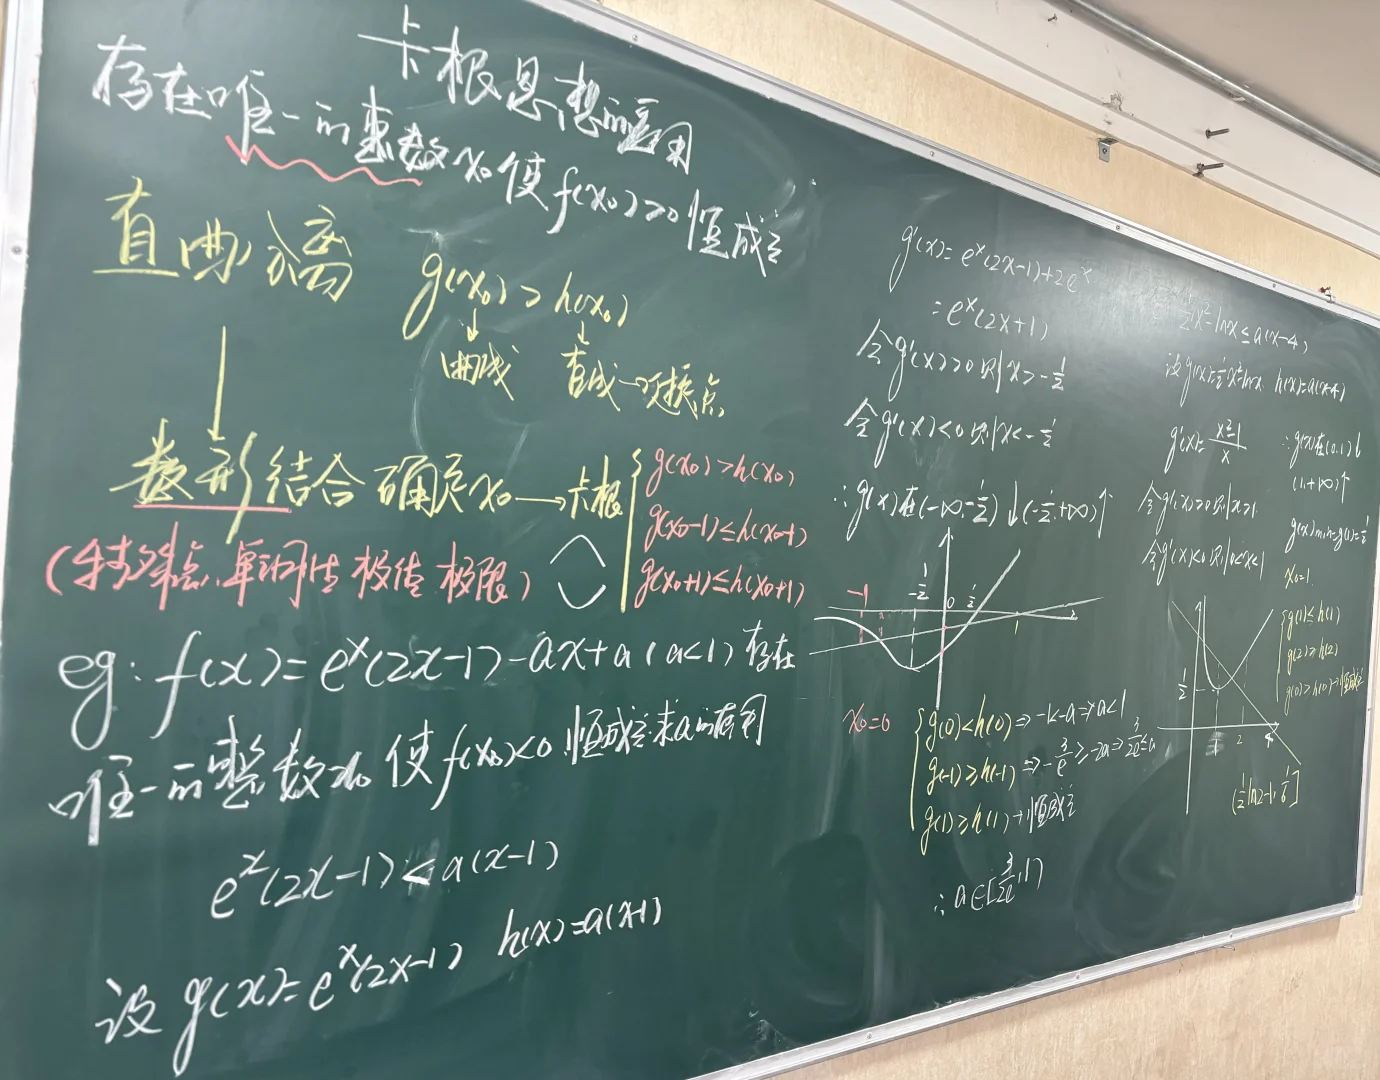 卡根思想的应用
存在唯一的整数x₀使f(x₀)>0恒成立
直曲分离
g(x₀)>h(x₀)
↓ ↓
曲线 直线→定点
数形结合确定x₀→卡根
g(x₀)>h(x₀)
g(x₀-1)≤h(x₀-1)
g(x₀+1)≤h(x₀+1)
(特殊点、单调性 极值 极限)
eg: f(x)=eˣ(2x-1)-ax+a (a<1) 存在
唯一的整数x₀使f(x₀)<0恒成立求a的范围
eˣ(2x-1)<a(x-1)
设g(x)=eˣ(2x-1) h(x)=a(x-1)
g'(x)=eˣ(2x-1)+2eˣ
=eˣ(2x+1)
令g'(x)>0则x>-1/2
令g'(x)<0则x<-1/2
∴g(x)在(-∞,-1/2)↓(-1/2,+∞)↑
-1 -1/2 0 1/2 1
x₀=0
g(0)<h(0)⇒-1<-a⇒a<1
g(-1)≥h(-1)⇒-3/e≥-2a⇒3/2e≤a
g(1)≥h(1)→恒成立
∴a∈[3/2e,1)
1/2x²-lnx≤a(x-4)
设g(x)=1/2x²-lnx h(x)=a(x-4)
g'(x)=x²-1/x
令g'(x)>0则x>1
令g'(x)<0则0<x<1
∴g(x)在(0,1)↓
(1,+∞)↑
g(x)min=g(1)=1/2
x₀=1
g(1)≤h(1)
g(2)>h(2)
g(0)>h(0)→恒成立
1/2 1 2 4